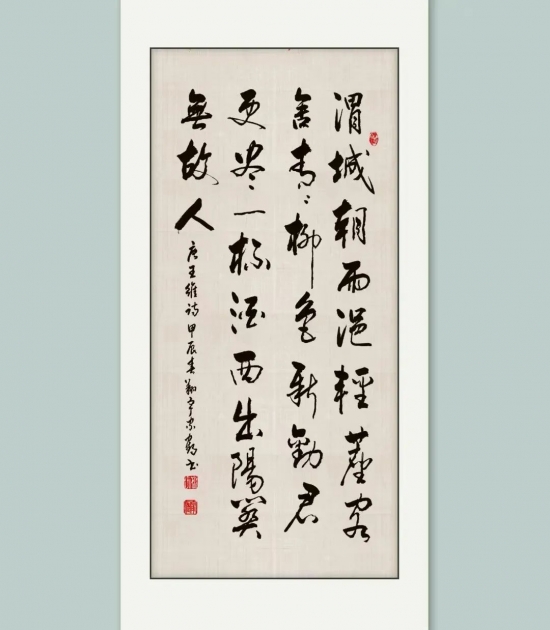 渭城朝雨浥輕塵客
舍青々柳色新勸君
更尽一杯酒西出陽關
無故人
唐王維诗甲辰春书